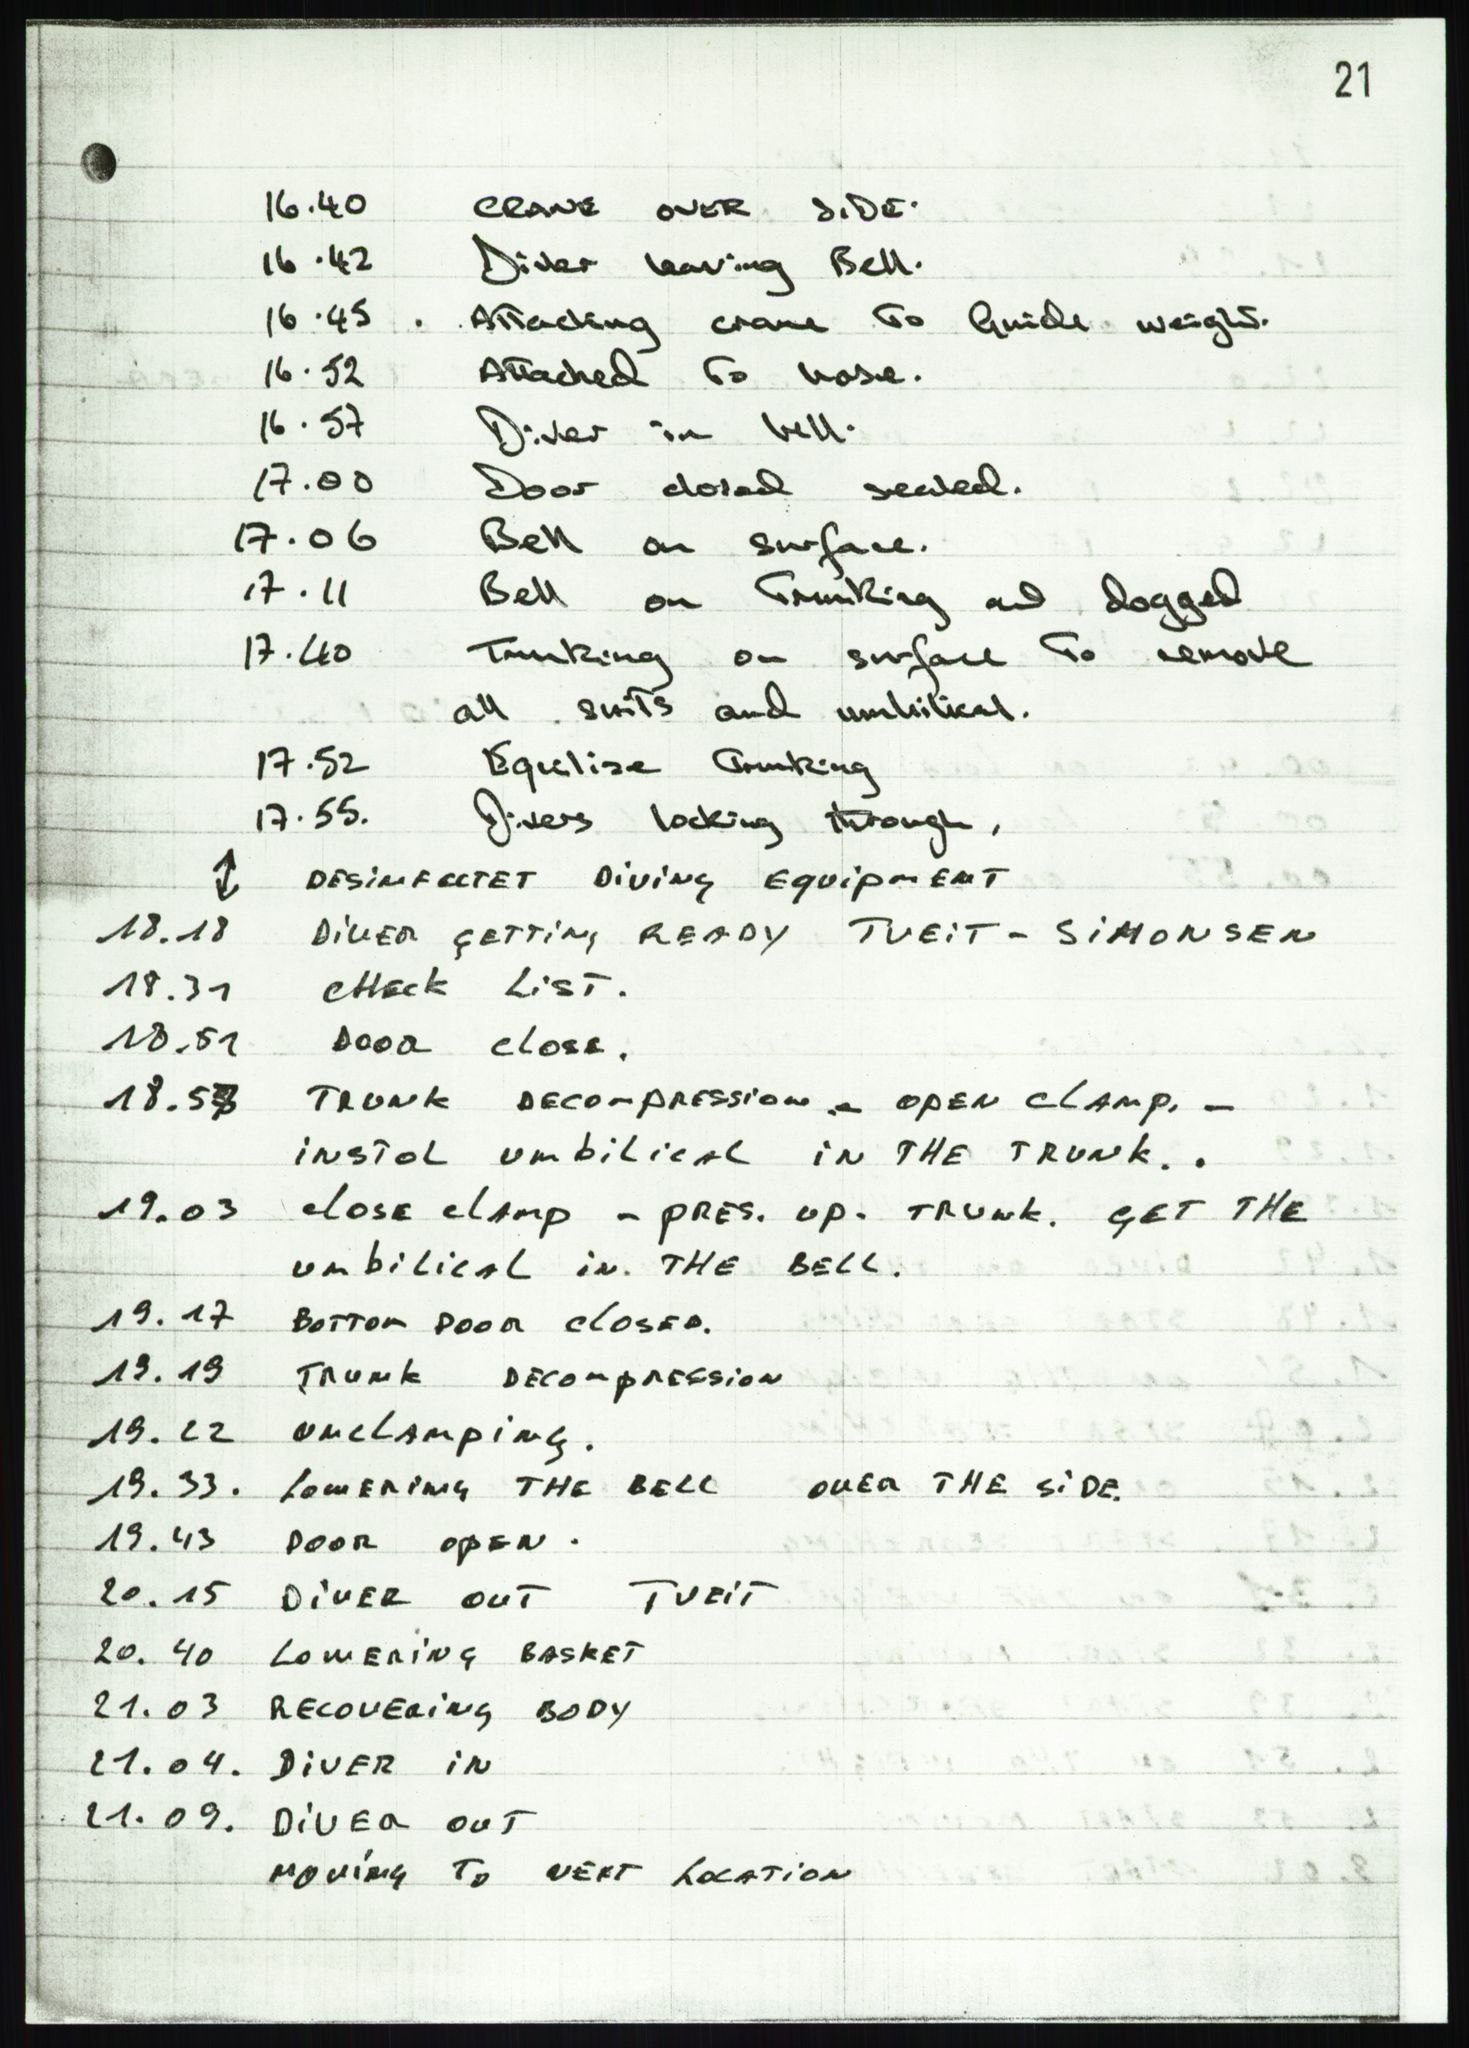 21
16.40 CRANE OVER SiDE.
16.42 Diver leaving Bell.
16.45 . Attaching crane To Guide weight.
16.52 Attached To hose.
16.57 Diver in bell.
17.00 Door closed sealed.
17.06 Bell on surface.
17.11 Bell on Trunking and dogged
17.40 Trunking on surface To remove
all suits and umbilical.
17.52 Equelise Trunking
17.55. Divers locking through,
↕ DESiNFECTET DiViNG EQUipMENT
18.18 DiVER GETTiNG READY TVEiT - SiMONSEN
18.31 CHECK LiST.
18.51 DOOR CLOSE.
TRUNK DECOMPRESSION - OPEN CLAMP. -
iNSTOL UMBiLiCAL iN THE TRUNK. .
19.03 CLOSE CLAMP - PRES. UP. TRUNK. GET THE
UMBiLiCAL iN. THE BELL.
19.17 BOTTOM DOOR CLOSED.
19.19 TRUNK DECOMPRESSiON
19.22 UNCLAMPiNG.
19.33. LOWERiNG THE BELL OVER THE SiDE.
19.43 DOOR OPEN.
20.15 DiVER OUT TVEiT
20.40 LOWERiNG BASKET
21.03 RECOVERiNG BODY
21.04. DiVER iN
21.09. DiVER OUT
MOViNG TO NEXT LOCATiON